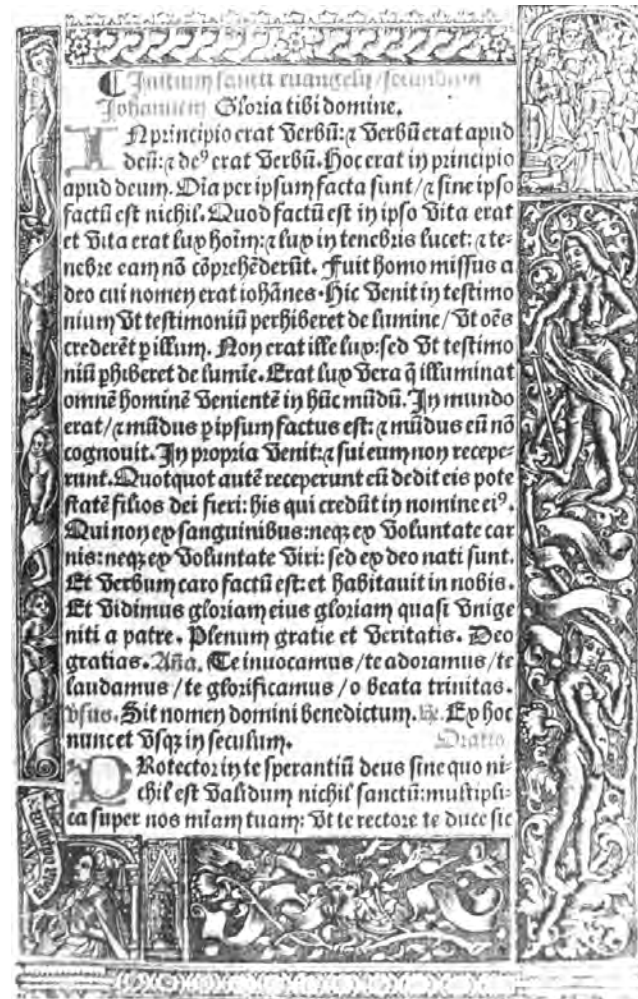 ¶ Initium sancti euangelij secundum
Johannem Gloria tibi domine.
IN principio erat verbū: ⁊ verbū erat apud
deū: ⁊ deꝰ erat verbū. Hoc erat in principio
apud deum. Oīa per ipsum facta sunt / ⁊ sine ipso
factū est nichil. Quod factū est in ipso vita erat
et vita erat lux hoīm: ⁊ lux in tenebris lucet: ⁊ te-
nebre eam nō cōprehēderūt. Fuit homo missus a
deo cui nomen erat iohānes. Hic venit in testimo
nium vt testimoniū perhiberet de lumine / vt oēs
crederēt ꝑ illum. Non erat ille lux: sed vt testimo
niū ꝑhiberet de lumīe. Erat lux vera q̄ illuminat
omnē hominē venientē in hūc mūdū. In mundo
erat / ⁊ mūdus ꝑ ipsum factus est: ⁊ mūdus eū nō
cognouit. In propria venit: ⁊ sui eum non recepe-
runt. Quotquot autē receperunt eū dedit eis pote
statē filios dei fieri: his qui credūt in nomine eiꝰ.
Qui non ex sanguinibus: neqȝ ex voluntate car
nis: neqȝ ex voluntate viri: sed ex deo nati sunt.
Et verbum caro factū est: et habitauit in nobis.
Et vidimus gloriam eius gloriam quasi vnige
niti a patre. Plenum gratie et veritatis. Deo
gratias. Aña. Te inuocamus / te adoramus / te
laudamus / te glorificamus / o beata trinitas.
vsus. Sit nomen domini benedictum. ℟. Ex hoc
nunc et vsqȝ in seculum. Oratio
PRotector in te sperantiū deus sine quo ni-
chil est validum nichil sanctū: multipli-
ca super nos mīam tuam: vt te rectore te duce sic